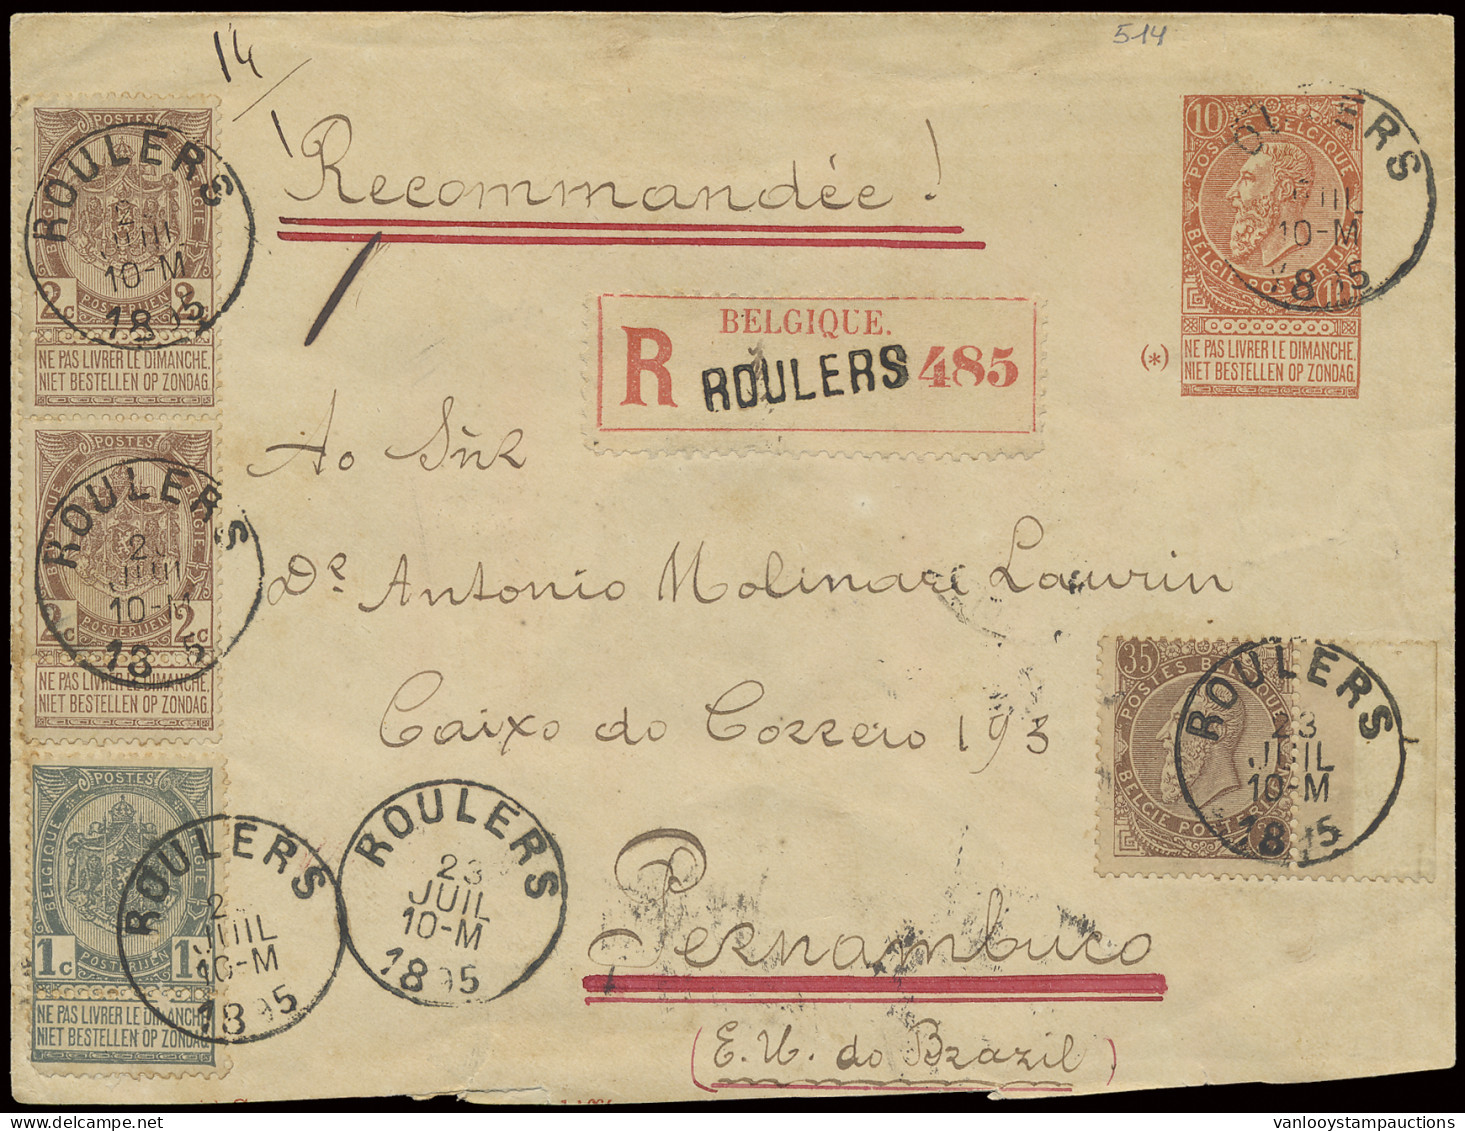 14
514
Recommandée!
BELGIQUE.
R ROULERS 485
Ao Snr
Dr Antonio Molinari Laurin
Caixo do Correro 193
Pernambuco
(E. U. do Brazil)
POSTES
BELGIQUE BELGIE
2c 2c
POSTERIJEN
NE PAS LIVRER LE DIMANCHE.
NIET BESTELLEN OP ZONDAG.
ROULERS
JUIL
10-M
1895
POSTES
BELGIQUE BELGIE
2c 2c
POSTERIJEN
NE PAS LIVRER LE DIMANCHE.
NIET BESTELLEN OP ZONDAG.
ROULERS
JUIL
10-M
1895
POSTES
BELGIQUE BELGIE
1c 1c
POSTERIJEN
NE PAS LIVRER LE DIMANCHE.
NIET BESTELLEN OP ZONDAG.
ROULERS
JUIL
10-M
1895
ROULERS
23
JUIL
10-M
1895
10
POSTES BELGIQUE
BELGIE POSTERIJEN
10
(*) NE PAS LIVRER LE DIMANCHE.
NIET BESTELLEN OP ZONDAG.
ERS
JUIL
10-M
1895
35
POSTES BELGIQUE
BELGIE POSTERIJEN
ROULERS
23
JUIL
10-M
1895
vanlooystampauctions